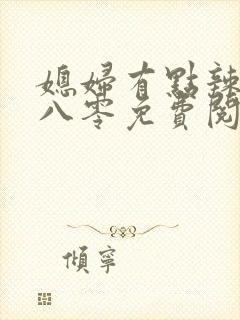 媳婦有點辣
八零免費閱
傾寧